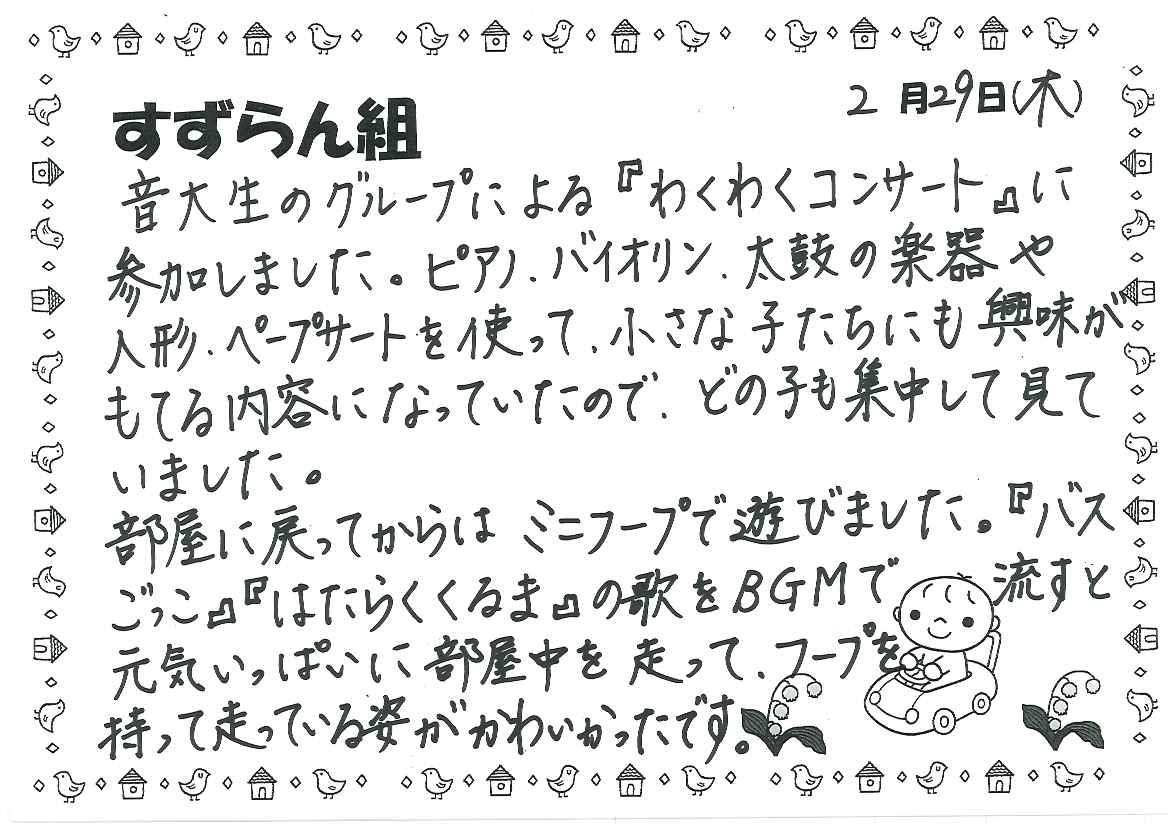 2月29日(木)
すずらん組
音大生のグループによる『わくわくコンサート』に
参加しました。ピアノ、バイオリン、太鼓の楽器や
人形、ペープサートを使って、小さな子たちにも興味が
もてる内容になっていたので、どの子も集中して見て
いました。
部屋に戻ってからは ミニフープで遊びました。『バス
ごっこ』『はたらくくるま』の歌をBGMで 流すと
元気いっぱいに部屋中を走って、フープを
持って走っている姿がかわいかったです。